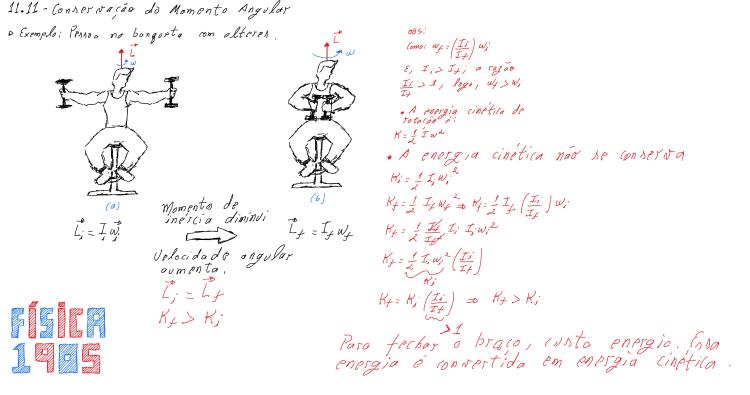 11.11 - Conservação do Momento Angular
Exemplo: Pessoa na banqueta com alteres.
L
ω
(a)
L
ω
(b)
Momento de
inércia diminui
Li = Ii ωi
Lf = If ωf
Velocidade angular
aumenta.
Li = Lf
Kf > Ki
FÍSICA
1905
OBS:
Como: ωf = (Ii/If) ωi
E, Ii > If; a razão
Ii/If > 1, logo, ωf > ωi
• A energia cinética de
rotação é:
K = 1/2 I ω²
• A energia cinética não se conserva
Ki = 1/2 Ii ωi²
Kf = 1/2 If ωf² ⇒ Kf = 1/2 If (Ii/If) ωi
Kf = 1/2 If/If Ii Ii ωi²
Kf = 1/2 Ii ωi² (Ii/If)
Ki
Kf = Ki (Ii/If) ⇒ Kf > Ki
>1
Para fechar o braço, custa energia. Essa
energia é convertida em energia cinética.